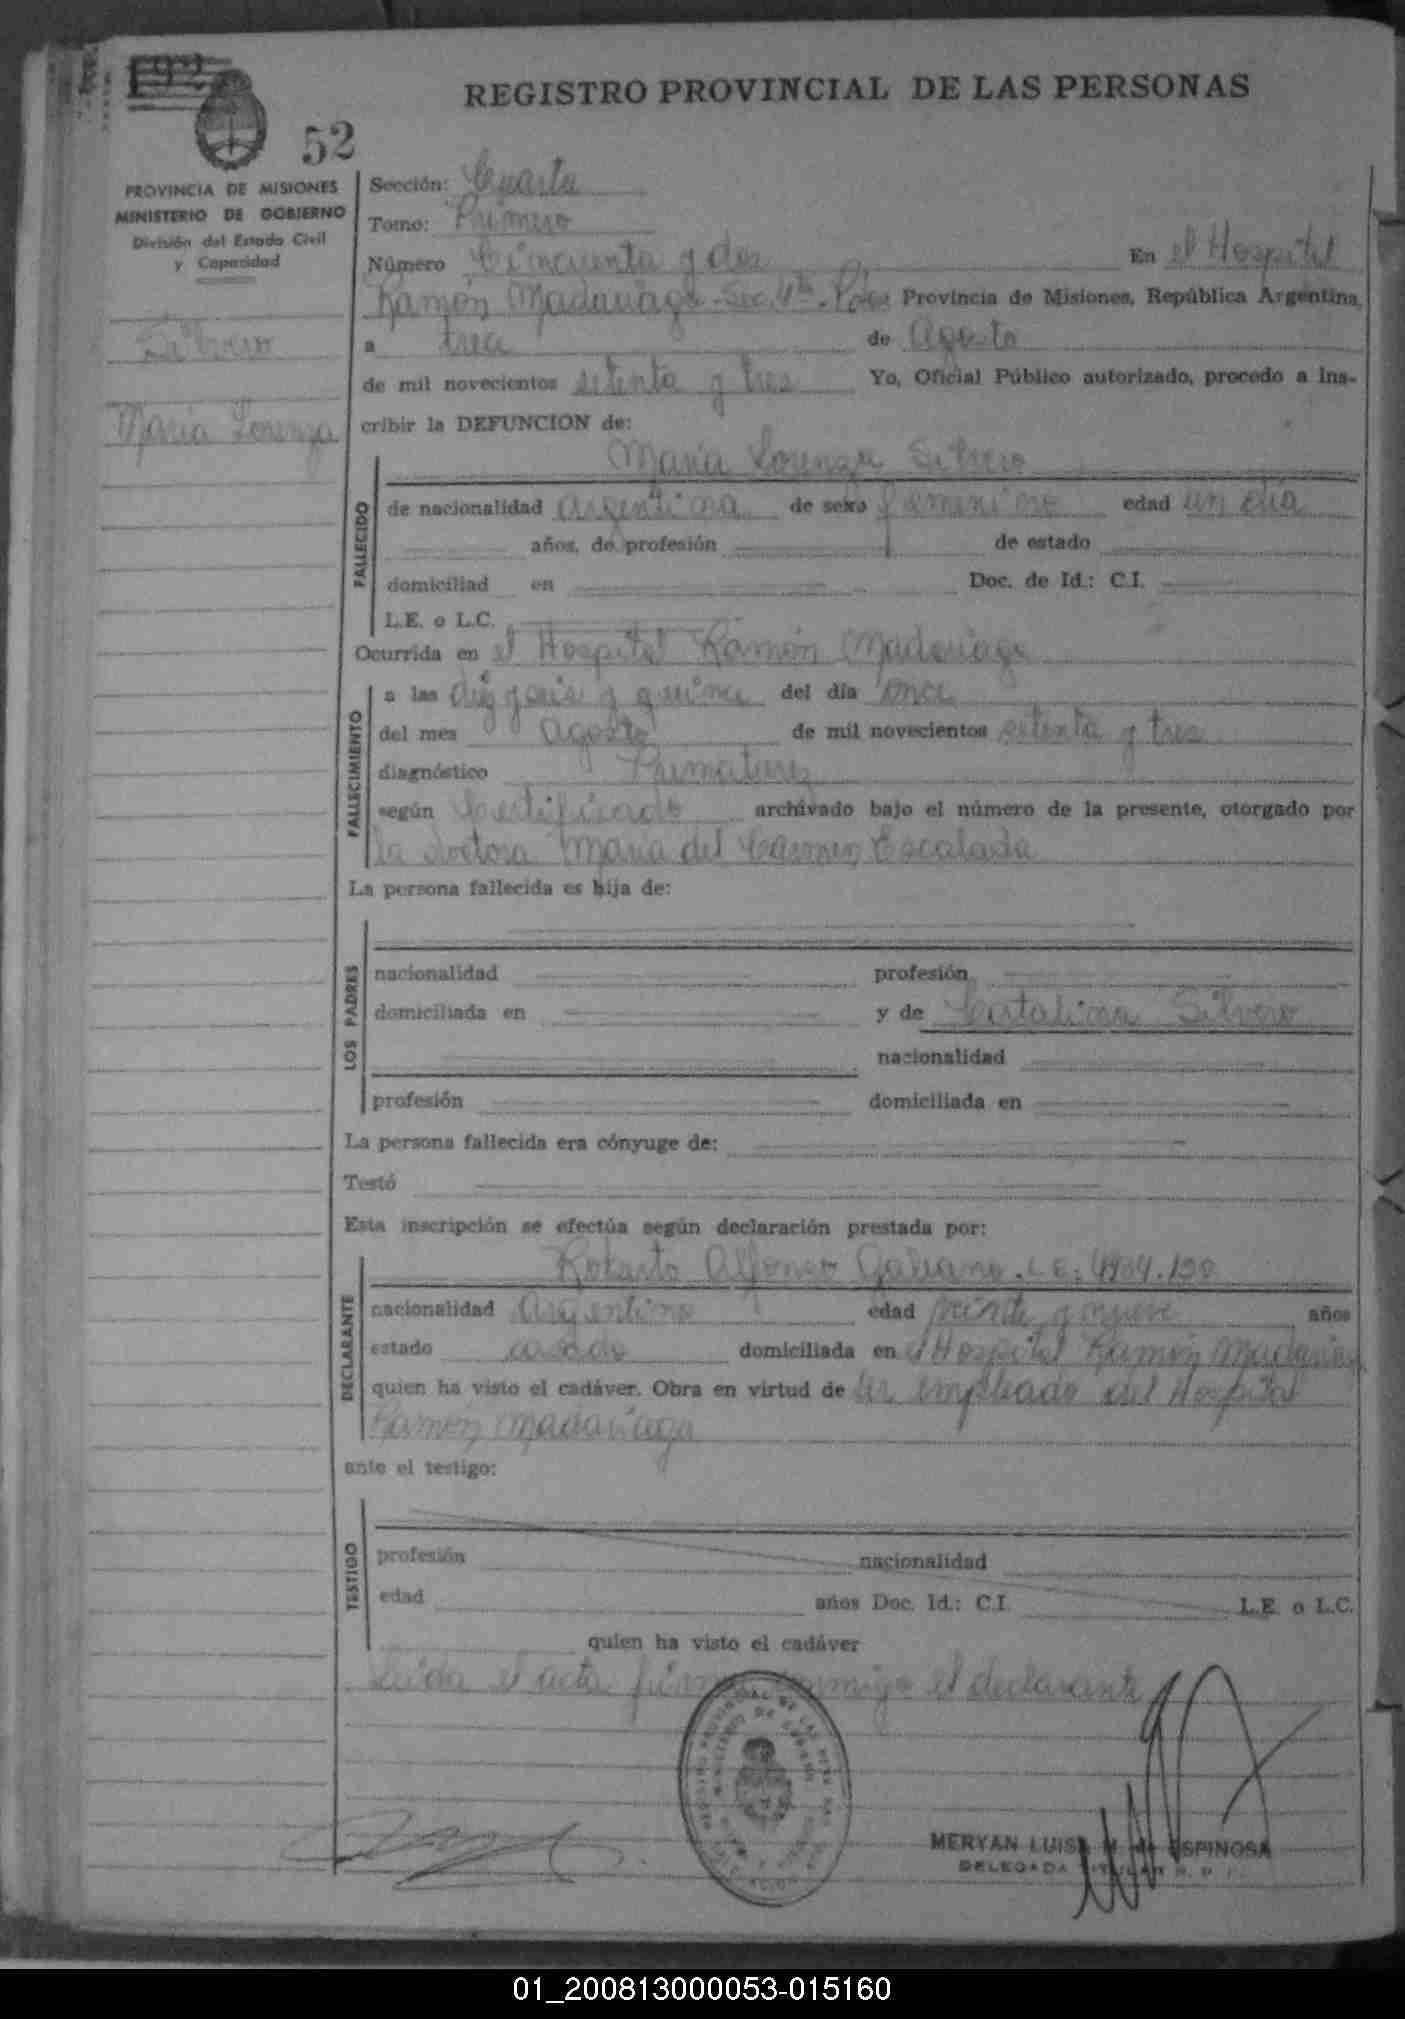 REGISTRO PROVINCIAL DE LAS PERSONAS
52
PROVINCIA DE MISIONES
MINISTERIO DE GOBIERNO
División del Estado Civil
y Capacidad
Silvero
María Lorenza
Sección: Cuarta
Tomo: Primero
Número Cincuenta y dos En el Hospital
Ramón Madariaga - Sec. 4ta - Pdas Provincia de Misiones, República Argentina,
a trece de Agosto
de mil novecientos setenta y tres Yo, Oficial Público autorizado, procedo a ins-
cribir la DEFUNCION de:
María Lorenza Silvero
FALLECIDO
de nacionalidad Argentina de sexo femenino edad un día
años, de profesión de estado
domiciliad en Doc. de Id.: C.I.
L.E. o L.C.
Ocurrida en el Hospital Ramón Madariaga
FALLECIMIENTO
a las diez y seis y quince del día once
del mes Agosto de mil novecientos setenta y tres
diagnóstico Prematurez
según Certificado archivado bajo el número de la presente, otorgado por
la doctora María del Carmen Escalada
La persona fallecida es hija de:
LOS PADRES
nacionalidad profesión
domiciliada en y de Catalina Silvero
nacionalidad
profesión domiciliada en
La persona fallecida era cónyuge de:
Testó
Esta inscripción se efectúa según declaración prestada por:
DECLARANTE
Roberto Alfonso Galeano. L.E.
nacionalidad Argentino edad años
estado casado domiciliada en el Hospital Ramón Madariaga
quien ha visto el cadáver. Obra en virtud de ser empleado del Hospital
Ramón Madariaga
ante el testigo:
TESTIGO
profesión nacionalidad
edad años Doc. Id.: C.I. L.E. o L.C.
quien ha visto el cadáver
Leída el acta firma conmigo el declarante
MERYAN LUISA ESPINOSA
DELEGADA TITULAR R. P. P.
01_200813000053-015160